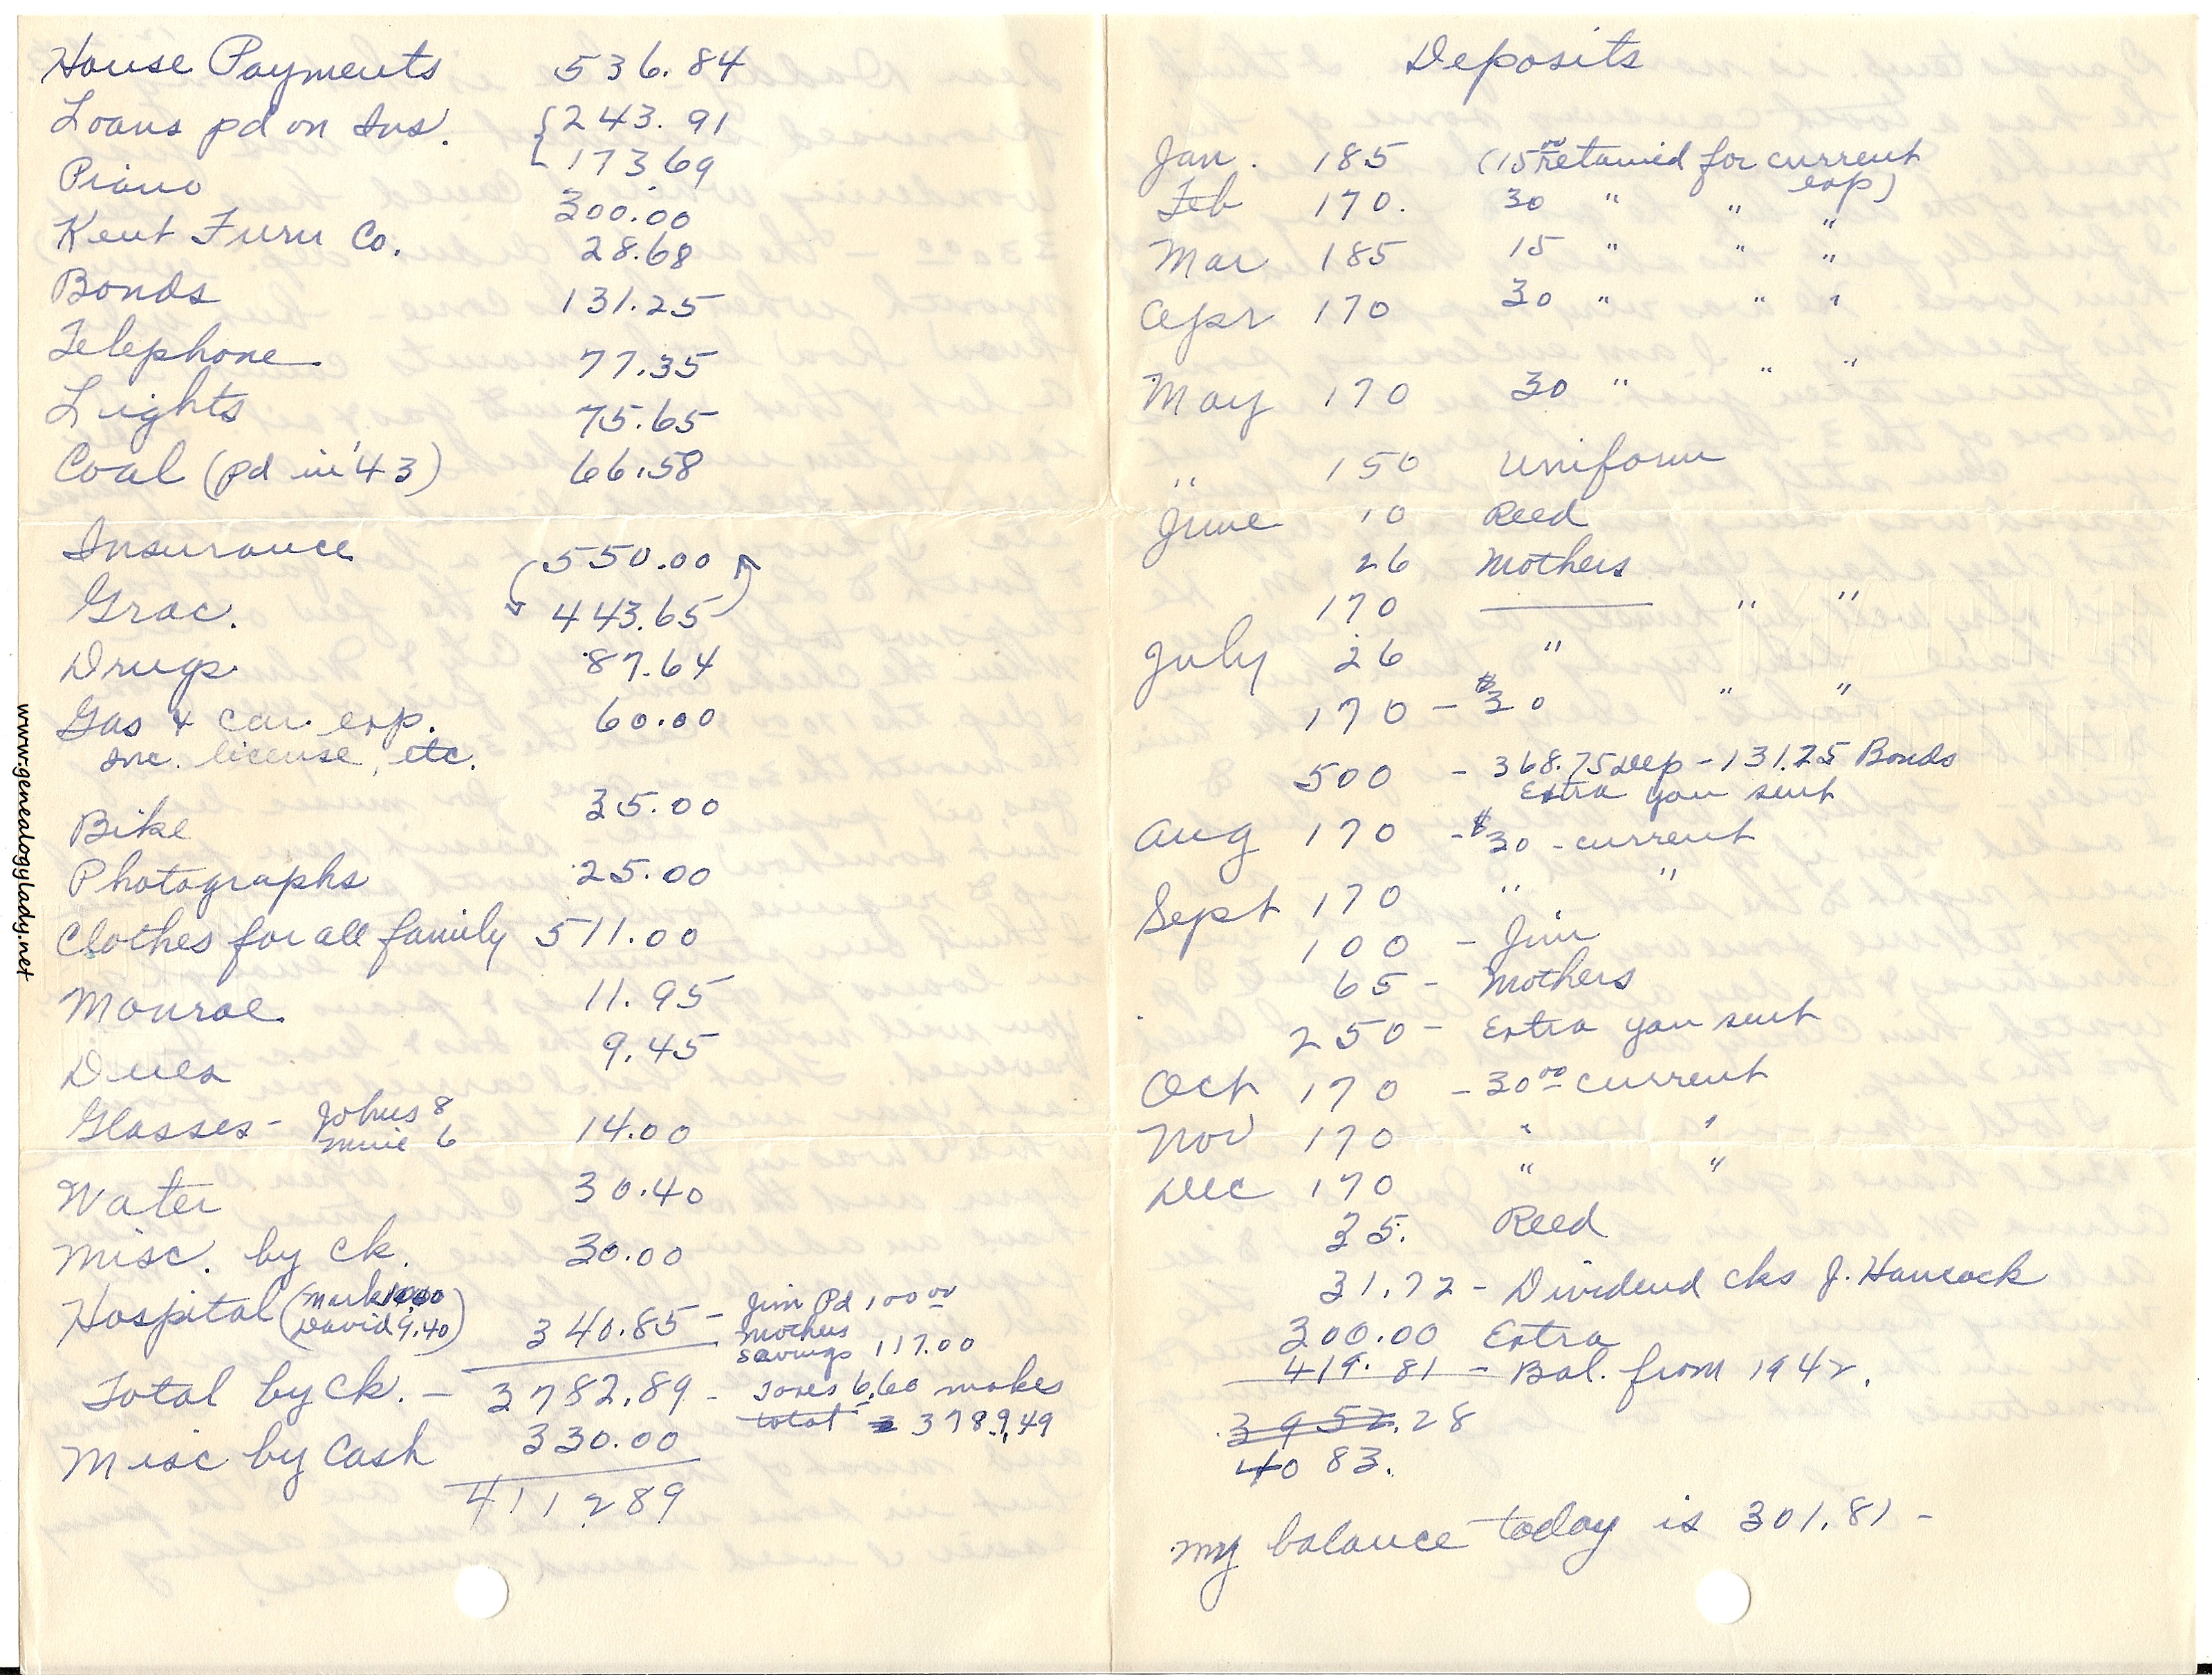 House Payments 536.84
Loans pd on Ins. { 243.91
{ 173.69
Piano 300.00
Kent Furn Co. 28.68
Bonds 131.25
Telephone 77.35
Lights 75.65
Coal (pd in '43) 66.58
Insurance 550.00
Groc. 443.65
Drugs 87.64
Gas & car exp. 60.00
inc. license, etc.
Bike 35.00
Photographs 25.00
Clothes for all family 511.00
Monroe 11.95
Dues 9.45
Glasses - Johns 8
mine 6 14.00
Water 30.40
Misc. by ck. 30.00
Hospital (Mark 10.00
David 9.40) 340.85 - Jim Pd 100 00
Mothers
savings 117.00
Total by ck. - 3782.89 - 6.60 makes
total 3789.49
Misc by Cash 330.00
4112 89
www.genealogylady.net
Deposits
Jan. 185 (15 00 retained for current
exp)
Feb 170. 30 " " "
Mar 185 15 " " "
Apr 170 30 " " "
May 170 30 " " "
" 150 Uniform
June 10 Reed
26 Mothers
170 " "
July 26 "
170 - $30 " "
500 - 368.75 dep - 131.25 Bonds
Extra you sent
Aug 170 - $30 - current
Sept 170 " "
100 - Jim
65 - Mothers
250 - Extra you sent
Oct 170 - 30 00 current
Nov 170 " "
Dec 170 " "
35. Reed
31.72 - Dividend cks J. Hancock
300.00 Extra
419.81 - Bal. from 1942.
3952.28
4083.
My balance today is 301.81 -